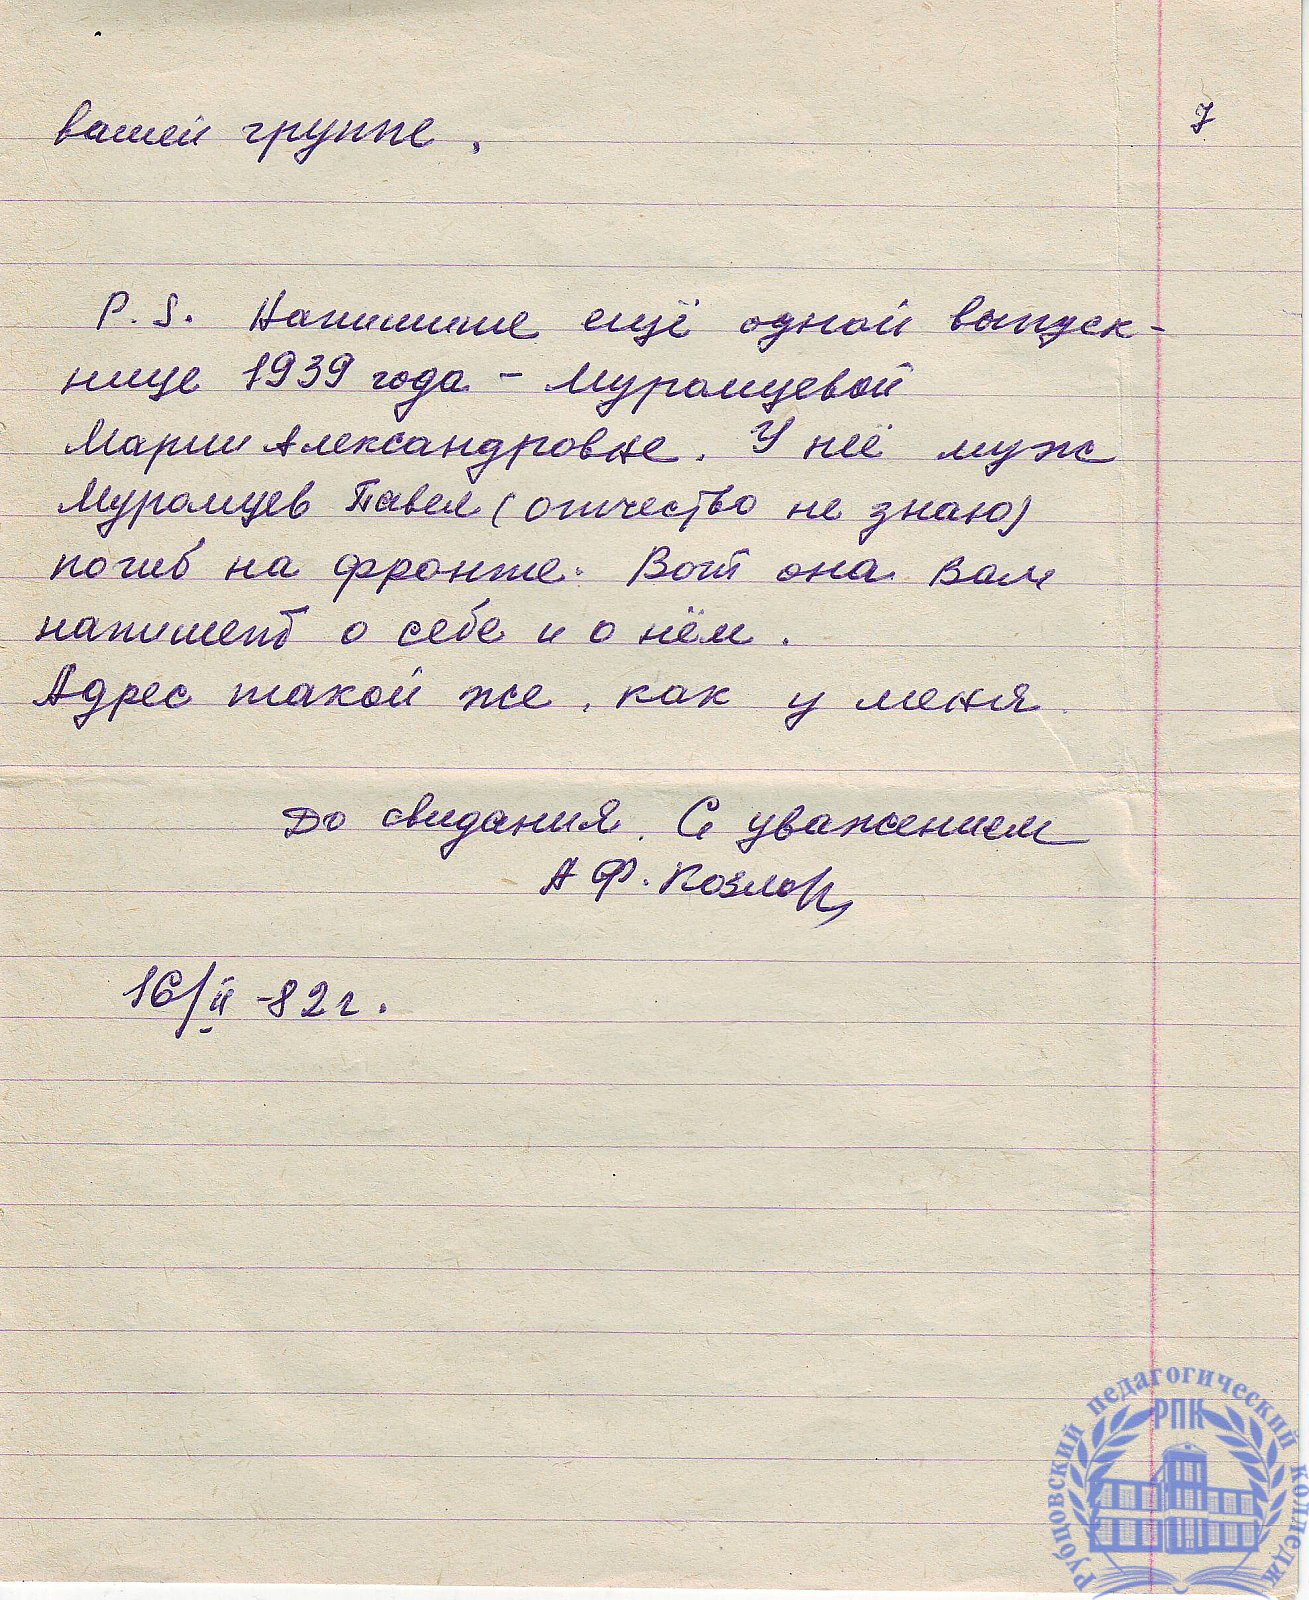 7
вашей группе.
P.S. Напишите ещё одной выпуск-
нице 1939 года - Муромцевой
Марии Александровне. У неё муж
Муромцев Павел (отчество не знаю)
погиб на фронте. Вот она Вам
напишет о себе и о нём.
Адрес такой же, как у меня.
До свидания. С уважением
А Ф. Козлов
16/II -82 г.
Рубцовский педагогический колледж
РПК